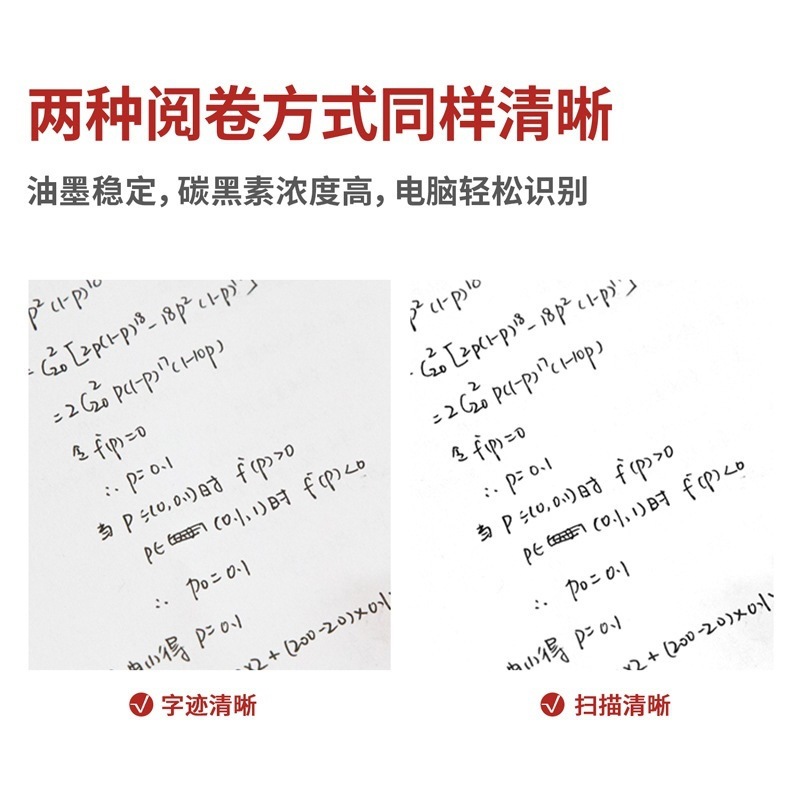 两种阅卷方式同样清晰
油墨稳定，碳黑素浓度高，电脑轻松识别
p²(1-p)¹⁸
= C₂₀²[2p(1-p)¹⁸-18p²(1-p)¹⁷]
= 2C₂₀² p(1-p)¹⁷(1-10p)
令 f'(p)=0
∴ p=0.1
当 p=(0,0.1)时 f'(p)>0
p∈ (0.1,1)时 f'(p)<0
∴ p₀=0.1
由(1)得 p=0.1
×2+(200-20)×0.1
p²(1-p)¹⁸
C₂₀²[2p(1-p)¹⁸-18p²(1-p)¹⁷]
= 2C₂₀² p(1-p)¹⁷(1-10p)
令 f'(p)=0
∴ p=0.1
当 p=(0,0.1)时 f'(p)>0
p∈ (0.1,1)时 f'(p)<0
∴ p₀=0.1
由(1)得 p=0.1
×2+(200-20)×0.1
字迹清晰
扫描清晰